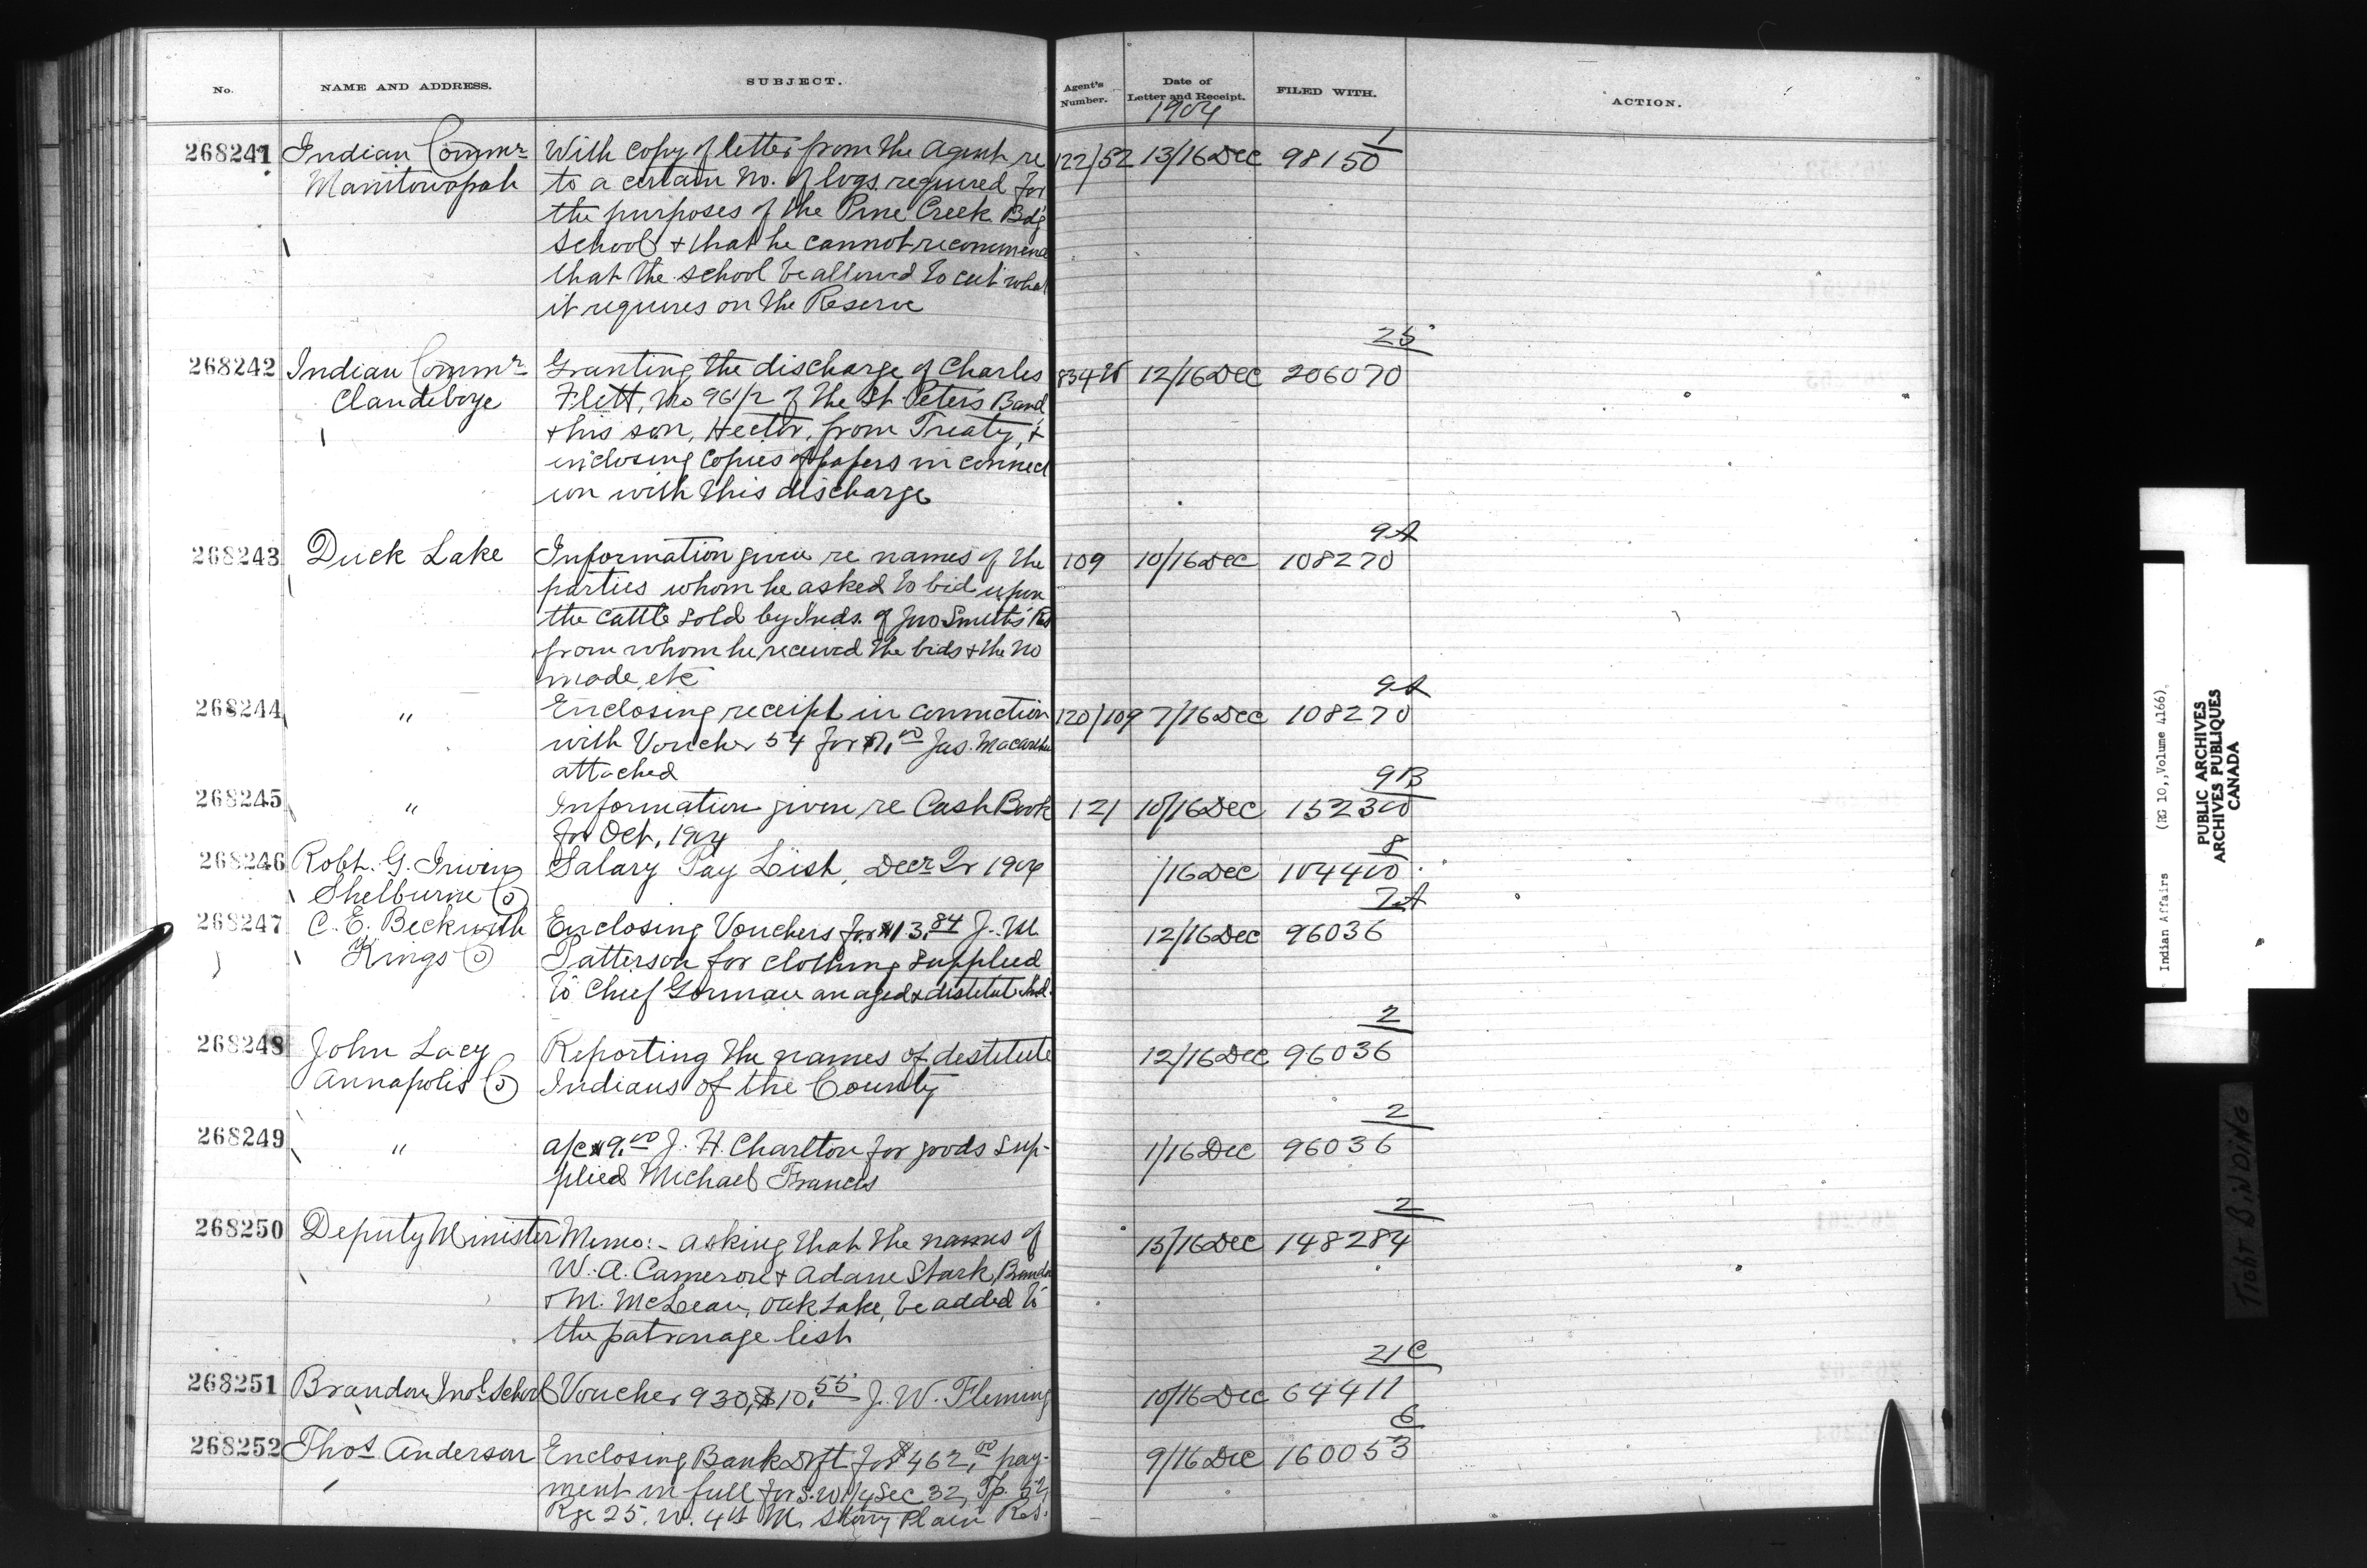 No.
NAME AND ADDRESS.
SUBJECT.
Agent's Number.
Date of Letter and Receipt.
FILED WITH.
ACTION.
1904
268241 Indian Commr With copy of letter from the Agent re 122/52 13/16 Dec 98150 1
Manitowapah to a certain No. of logs required for
the purposes of the Pine Creek Bdg
School & that he cannot recommend
that the school be allowed to cut what
it requires on the Reserve
25
268242 Indian Commr Granting the discharge of Charles 12/16 Dec 206070
Clandeboye Flett, No 961/2 of the St. Peter's Band
& his son, Hector, from Treaty, &
enclosing copies of papers in connect
ion with this discharge
9A
268243 Duck Lake Information given re names of the 109 10/16 Dec 108270
parties whom he asked to bid upon
the cattle sold by Inds. of Jno Smith's Res
from whom he received the bids & the No
made, etc
9A
268244 " Enclosing receipt in connection 120/109 7/16 Dec 108270
with Voucher 54 for Jas. Macarthur
attached
9B
268245 " Information given re Cash Book 121 10/16 Dec 152300
for Oct, 1904
8
268246 Robt. G. Irwin Salary Pay List, Decr Qr 1904 /16 Dec 104400
Shelburne Co
7A
268247 C. E. Beckwith Enclosing Vouchers for $13.84 J. M. 12/16 Dec 96036
Kings Co Patterson for clothing supplied
to Chief Gorman an aged & destitute Ind.
2
268248 John Lacy Reporting the names of destitute 12/16 Dec 96036
Annapolis Co Indians of the County
2
268249 " a/c $9.00 J. H. Charlton for goods sup- 1/16 Dec 96036
plied Michael Francis
2
268250 Deputy Minister Memo:- asking that the names of 15/16 Dec 148284
W. A. Cameron & Adam Stark, Brandon
& M. McLean, Oak Lake, be added to
the patronage list
21C
268251 Brandon Indl. School Voucher 930, $10.55 J. W. Fleming 10/16 Dec 64411
6
268252 Thos Anderson Enclosing Bank Dft for $462.00 pay- 9/16 Dec 160053
ment in full for S.W 1/4 Sec 32, Tp. 52,
Rge 25. W. 4th M. Stony Plain Res.
Indian Affairs (RG 10, Volume 4166)
PUBLIC ARCHIVES
ARCHIVES PUBLIQUES
CANADA
TIGHT BINDING